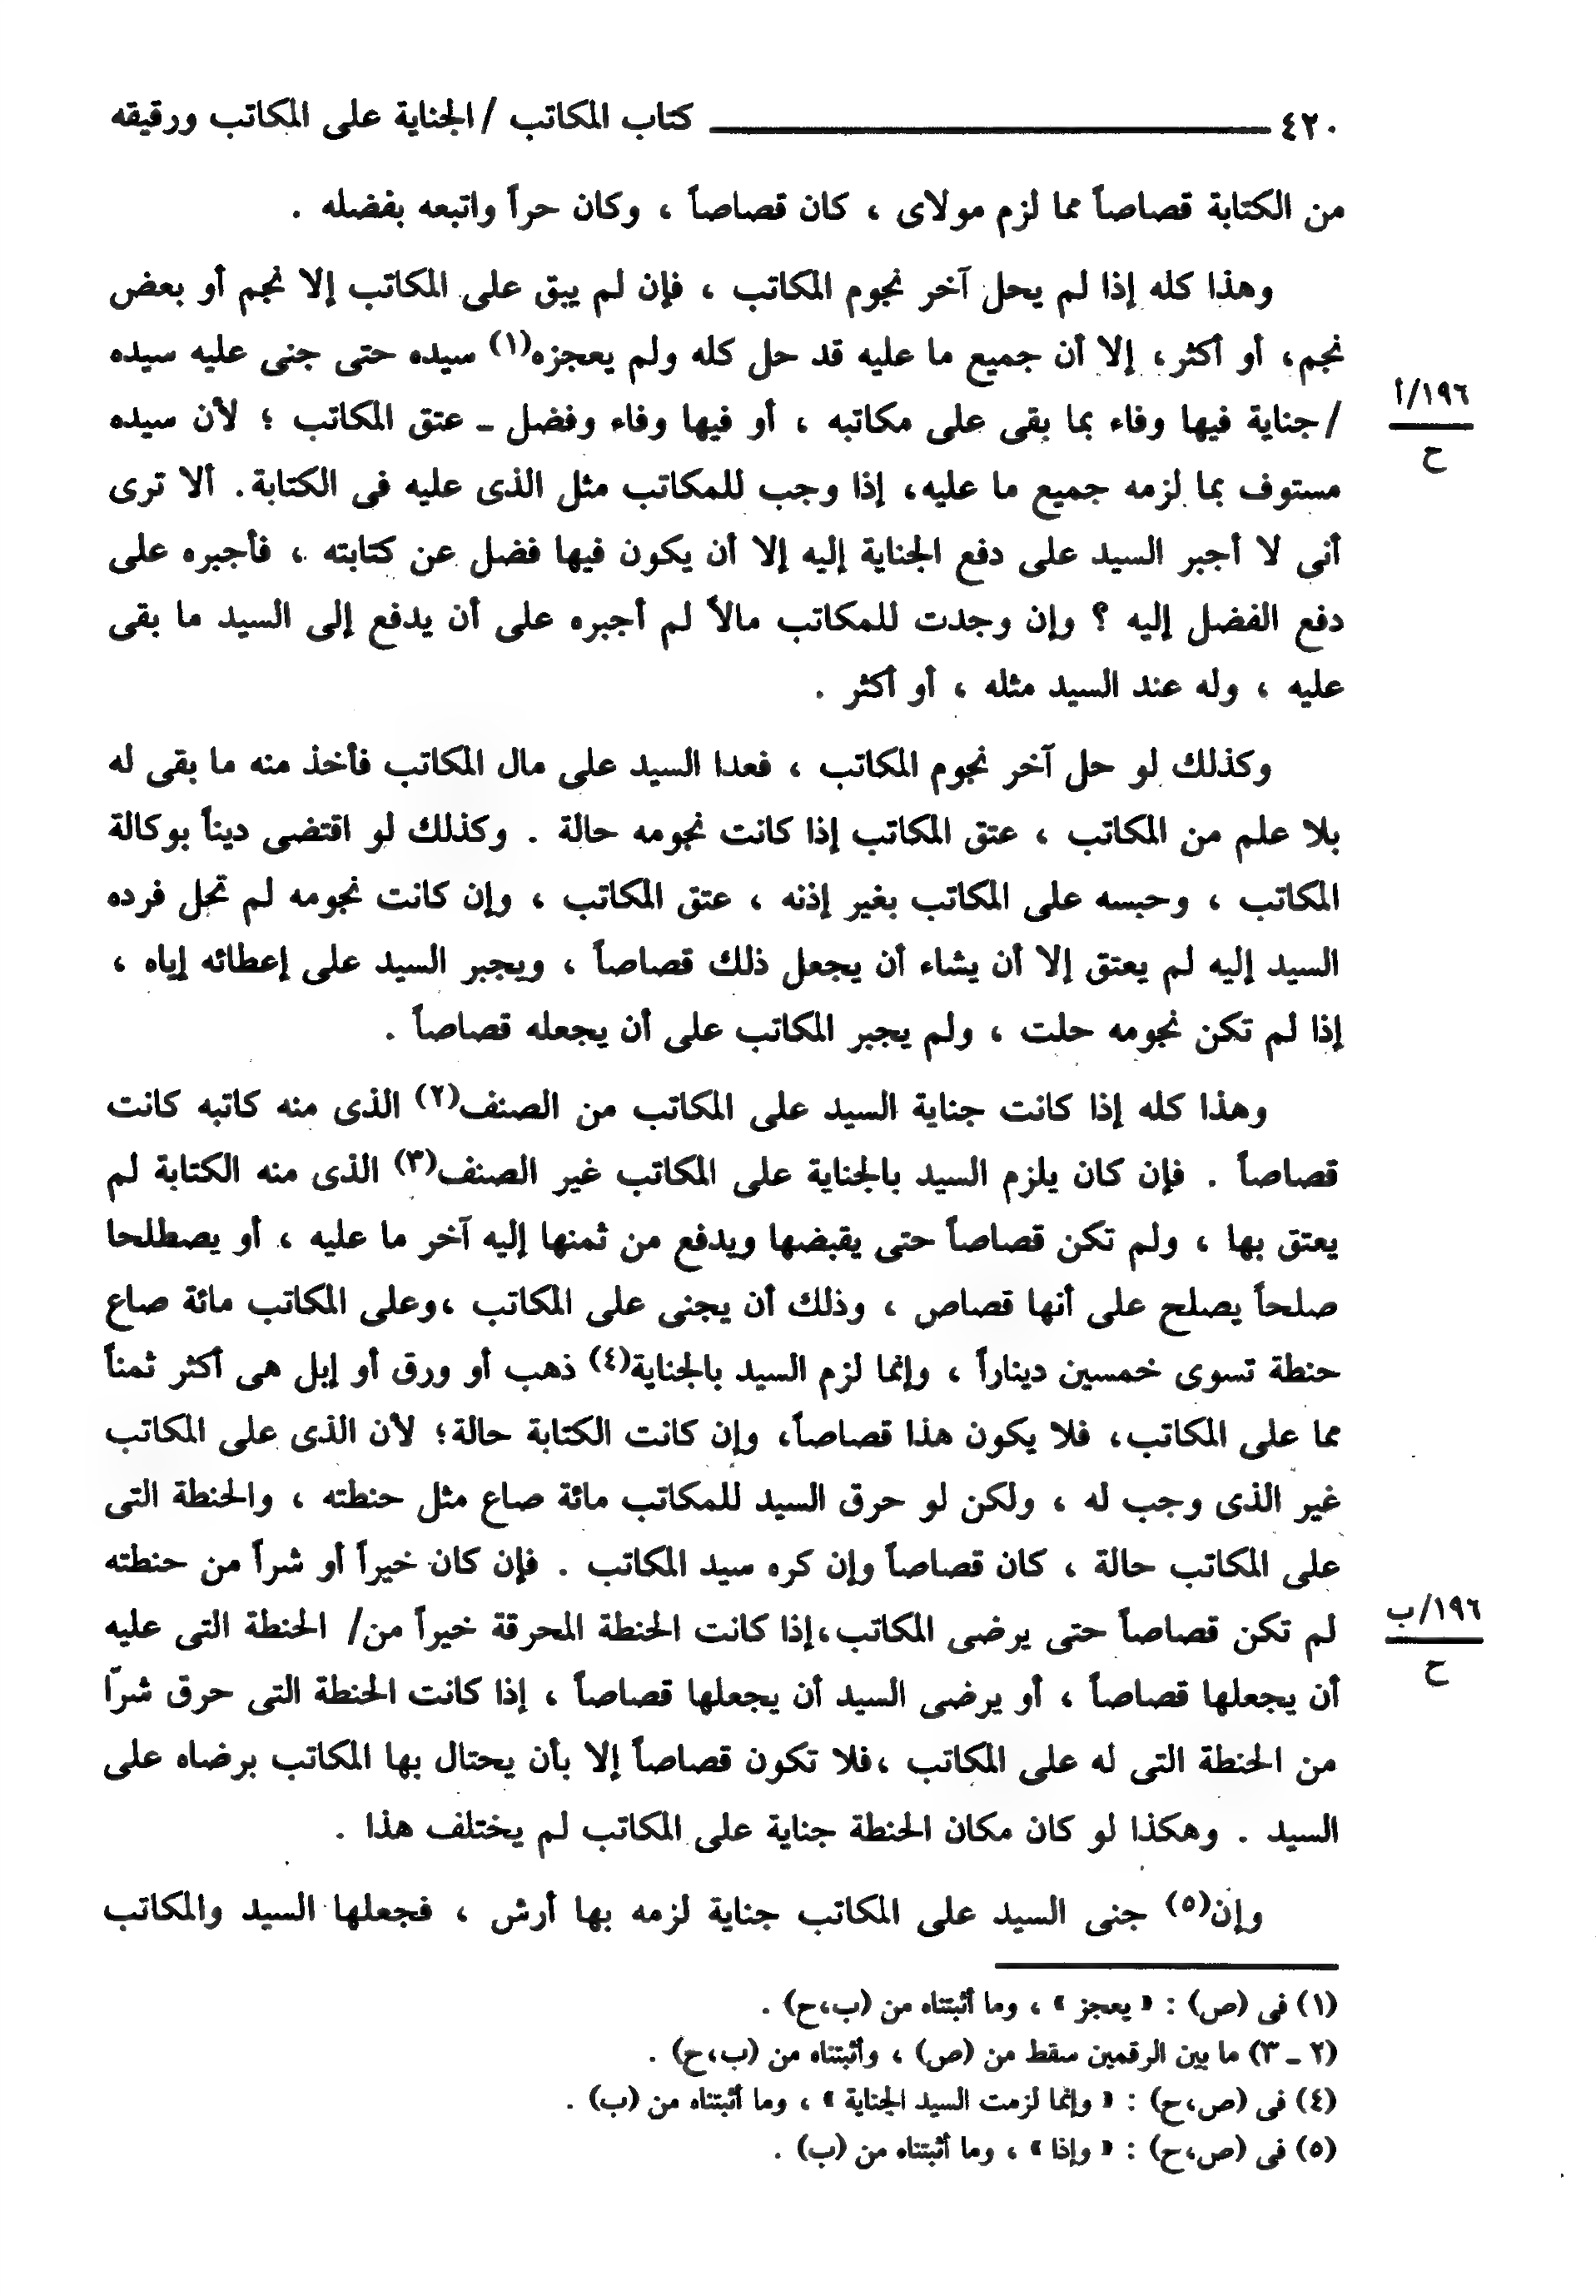 ٤٢٠ كتاب المكاتب / الجناية على المكاتب ورقيقه
من الكتابة قصاصاً مما لزم مولاى ، كان قصاصاً ، وكان حراً واتبعه بفضله .
وهذا كله إذا لم يحل آخر نجوم المكاتب ، فإن لم يبق على المكاتب إلا نجم أو بعض
نجم، أو أكثر، إلا أن جميع ما عليه قد حل كله ولم يعجزه(١) سيده حتى جنى عليه سيده
١٩٦/أ
ح
/جناية فيها وفاء بما بقى على مكاتبه ، أو فيها وفاء وفضل ـ عتق المكاتب ؛ لأن سيده
مستوف بما لزمه جميع ما عليه، إذا وجب للمكاتب مثل الذى عليه فى الكتابة. ألا ترى
أنى لا أجبر السيد على دفع الجناية إليه إلا أن يكون فيها فضل عن كتابته ، فأجبره على
دفع الفضل إليه ؟ وإن وجدت للمكاتب مالاً لم أجبره على أن يدفع إلى السيد ما بقى
عليه ، وله عند السيد مثله ، أو أكثر .
وكذلك لو حل آخر نجوم المكاتب ، فعدا السيد على مال المكاتب فأخذ منه ما بقى له
بلا علم من المكاتب ، عتق المكاتب إذا كانت نجومه حالة . وكذلك لو اقتضى ديناً بوكالة
المكاتب ، وحبسه على المكاتب بغير إذنه ، عتق المكاتب ، وإن كانت نجومه لم تحل فرده
السيد إليه لم يعتق إلا أن يشاء أن يجعل ذلك قصاصاً ، ويجبر السيد على إعطائه إياه ،
إذا لم تكن نجومه حلت ، ولم يجبر المكاتب على أن يجعله قصاصاً .
وهذا كله إذا كانت جناية السيد على المكاتب من الصنف(٢) الذى منه كاتبه كانت
قصاصاً . فإن كان يلزم السيد بالجناية على المكاتب غير الصنف(٣) الذى منه الكتابة لم
يعتق بها ، ولم تكن قصاصاً حتى يقبضها ويدفع من ثمنها إليه آخر ما عليه ، أو يصطلحا
صلحاً يصلح على أنها قصاص ، وذلك أن يجنى على المكاتب ،وعلى المكاتب مائة صاع
حنطة تسوى خمسين ديناراً ، وإنما لزم السيد بالجناية(٤) ذهب أو ورق أو إبل هى أكثر ثمناً
مما على المكاتب، فلا يكون هذا قصاصاً، وإن كانت الكتابة حالة؛ لأن الذى على المكاتب
غير الذى وجب له ، ولكن لو حرق السيد للمكاتب مائة صاع مثل حنطته ، والحنطة التى
على المكاتب حالة ، كان قصاصاً وإن كره سيد المكاتب . فإن كان خيراً أو شراً من حنطته
١٩٦/ب
ح
لم تكن قصاصاً حتى يرضى المكاتب،إذا كانت الحنطة المحرقة خيراً من/ الحنطة التى عليه
أن يجعلها قصاصاً ، أو يرضى السيد أن يجعلها قصاصاً ، إذا كانت الحنطة التى حرق شرّا
من الحنطة التى له على المكاتب ،فلا تكون قصاصاً إلا بأن يحتال بها المكاتب برضاه على
السيد . وهكذا لو كان مكان الحنطة جناية على المكاتب لم يختلف هذا .
وإن(٥) جنى السيد على المكاتب جناية لزمه بها أرش ، فجعلها السيد والمكاتب
(١) فى (ص) : « يعجز » ، وما أثبتناه من (ب،ح) .
(٢ ـ ٣) ما بين الرقمين سقط من (ص) ، وأثبتناه من (ب،ح) .
(٤) فى (ص،ح) : « وإنما لزمت السيد الجناية » ، وما أثبتناه من (ب) .
(٥) فى (ص،ح) : « وإذا » ، وما أثبتناه من (ب) .